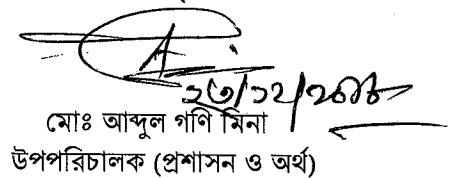 ২৩/১২/২০১৮
মোঃ আব্দুল গণি মিনা
উপপরিচালক (প্রশাসন ও অর্থ)